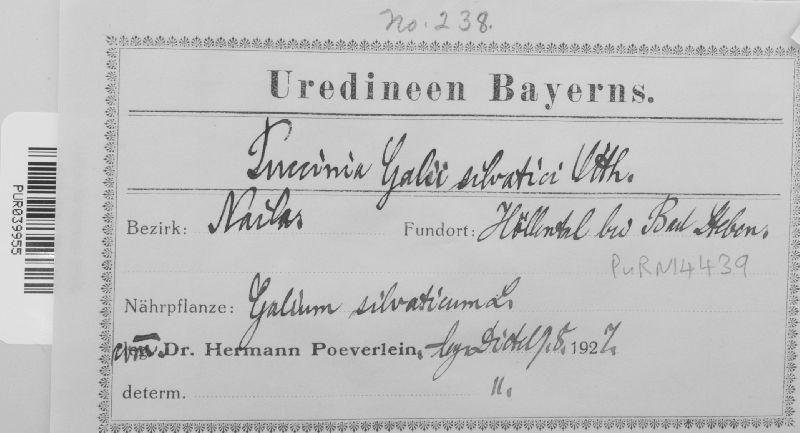 No. 238.
Uredineen Bayerns.
Puccinia Galii silvatici Otth.
Bezirk: Naila. Fundort: Höllental bei Bad Steben.
PURN14439
Nährpflanze: Galium silvaticum L.
Dr. Hermann Poeverlein, leg. Dietel 9.8. 1927.
determ. ".
PUR039955